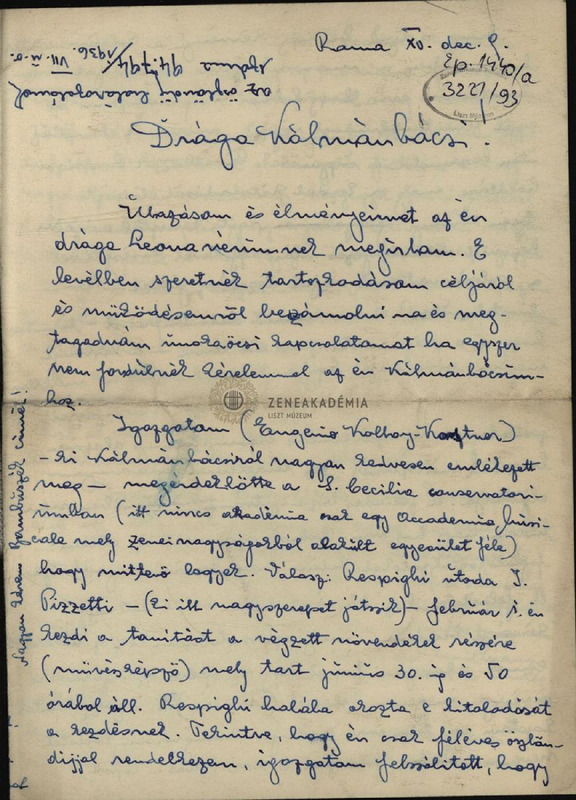 Roma XV. dec. 9.
Ép. 1440/a
3221/93
Liszt Múzeum
94.794
1936. VII.
Drága Kálmánbácsi.
Utazásom és élményeimet az én
drága Leona nénimnek megírtam. E
levélben szeretnék tartózkodásom céljáról
és működésemről beszámolni na és meg-
tagadnám unokaöcsi kapcsolatamat ha egyszer
nem fordulnék kérelemmel az én Kálmánbácsim-
hoz.
ZENEAKADÉMIA
LISZT MÚZEUM
Igazgatom (Eugenio Kolhoy-Kastner)
- ki Kálmánbácsiról nagyon kedvesen emlékezett
meg - megérdeklődte a S. Cecilia conservatori-
umban (itt nincs akadémia csak egy Accademia Musi-
cale mely zenei nagyságokból alakult egyesület féle)
hogy mittevő legyek. Válasz: Respighi utóda I.
Pizzetti - (ki itt nagy szerepet játszik) - február 1. én
kezdi a tanítást a végzett növendékek részére
(művészképző) mely tart június 30. ig és 50
órából áll. Respighi halála okozta e kitolódását
a kezdésnek. Tekintve, hogy én csak féléves ösztön-
díjjal rendelkezem, igazgatom felszólított, hogy
Nagyon kérem Bambuszék címét!